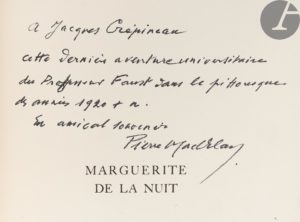 à Jacques Crépineau
cette dernière aventure universitaire
du Professeur Faust dans le pittoresque
des années 1920 + n.
En amical souvenir
Pierre Mac Orlan
MARGUERITE
DE LA NUIT